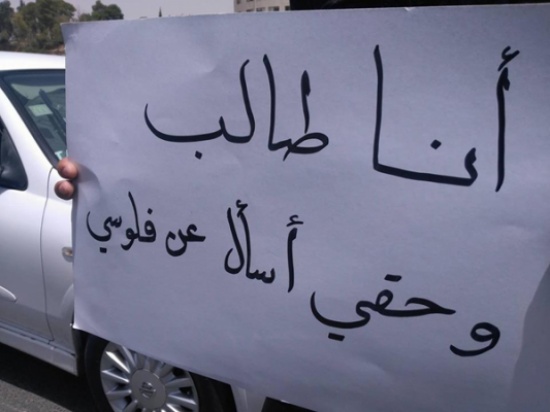 أنا طالب
وحقي أسأل عن فلوسي